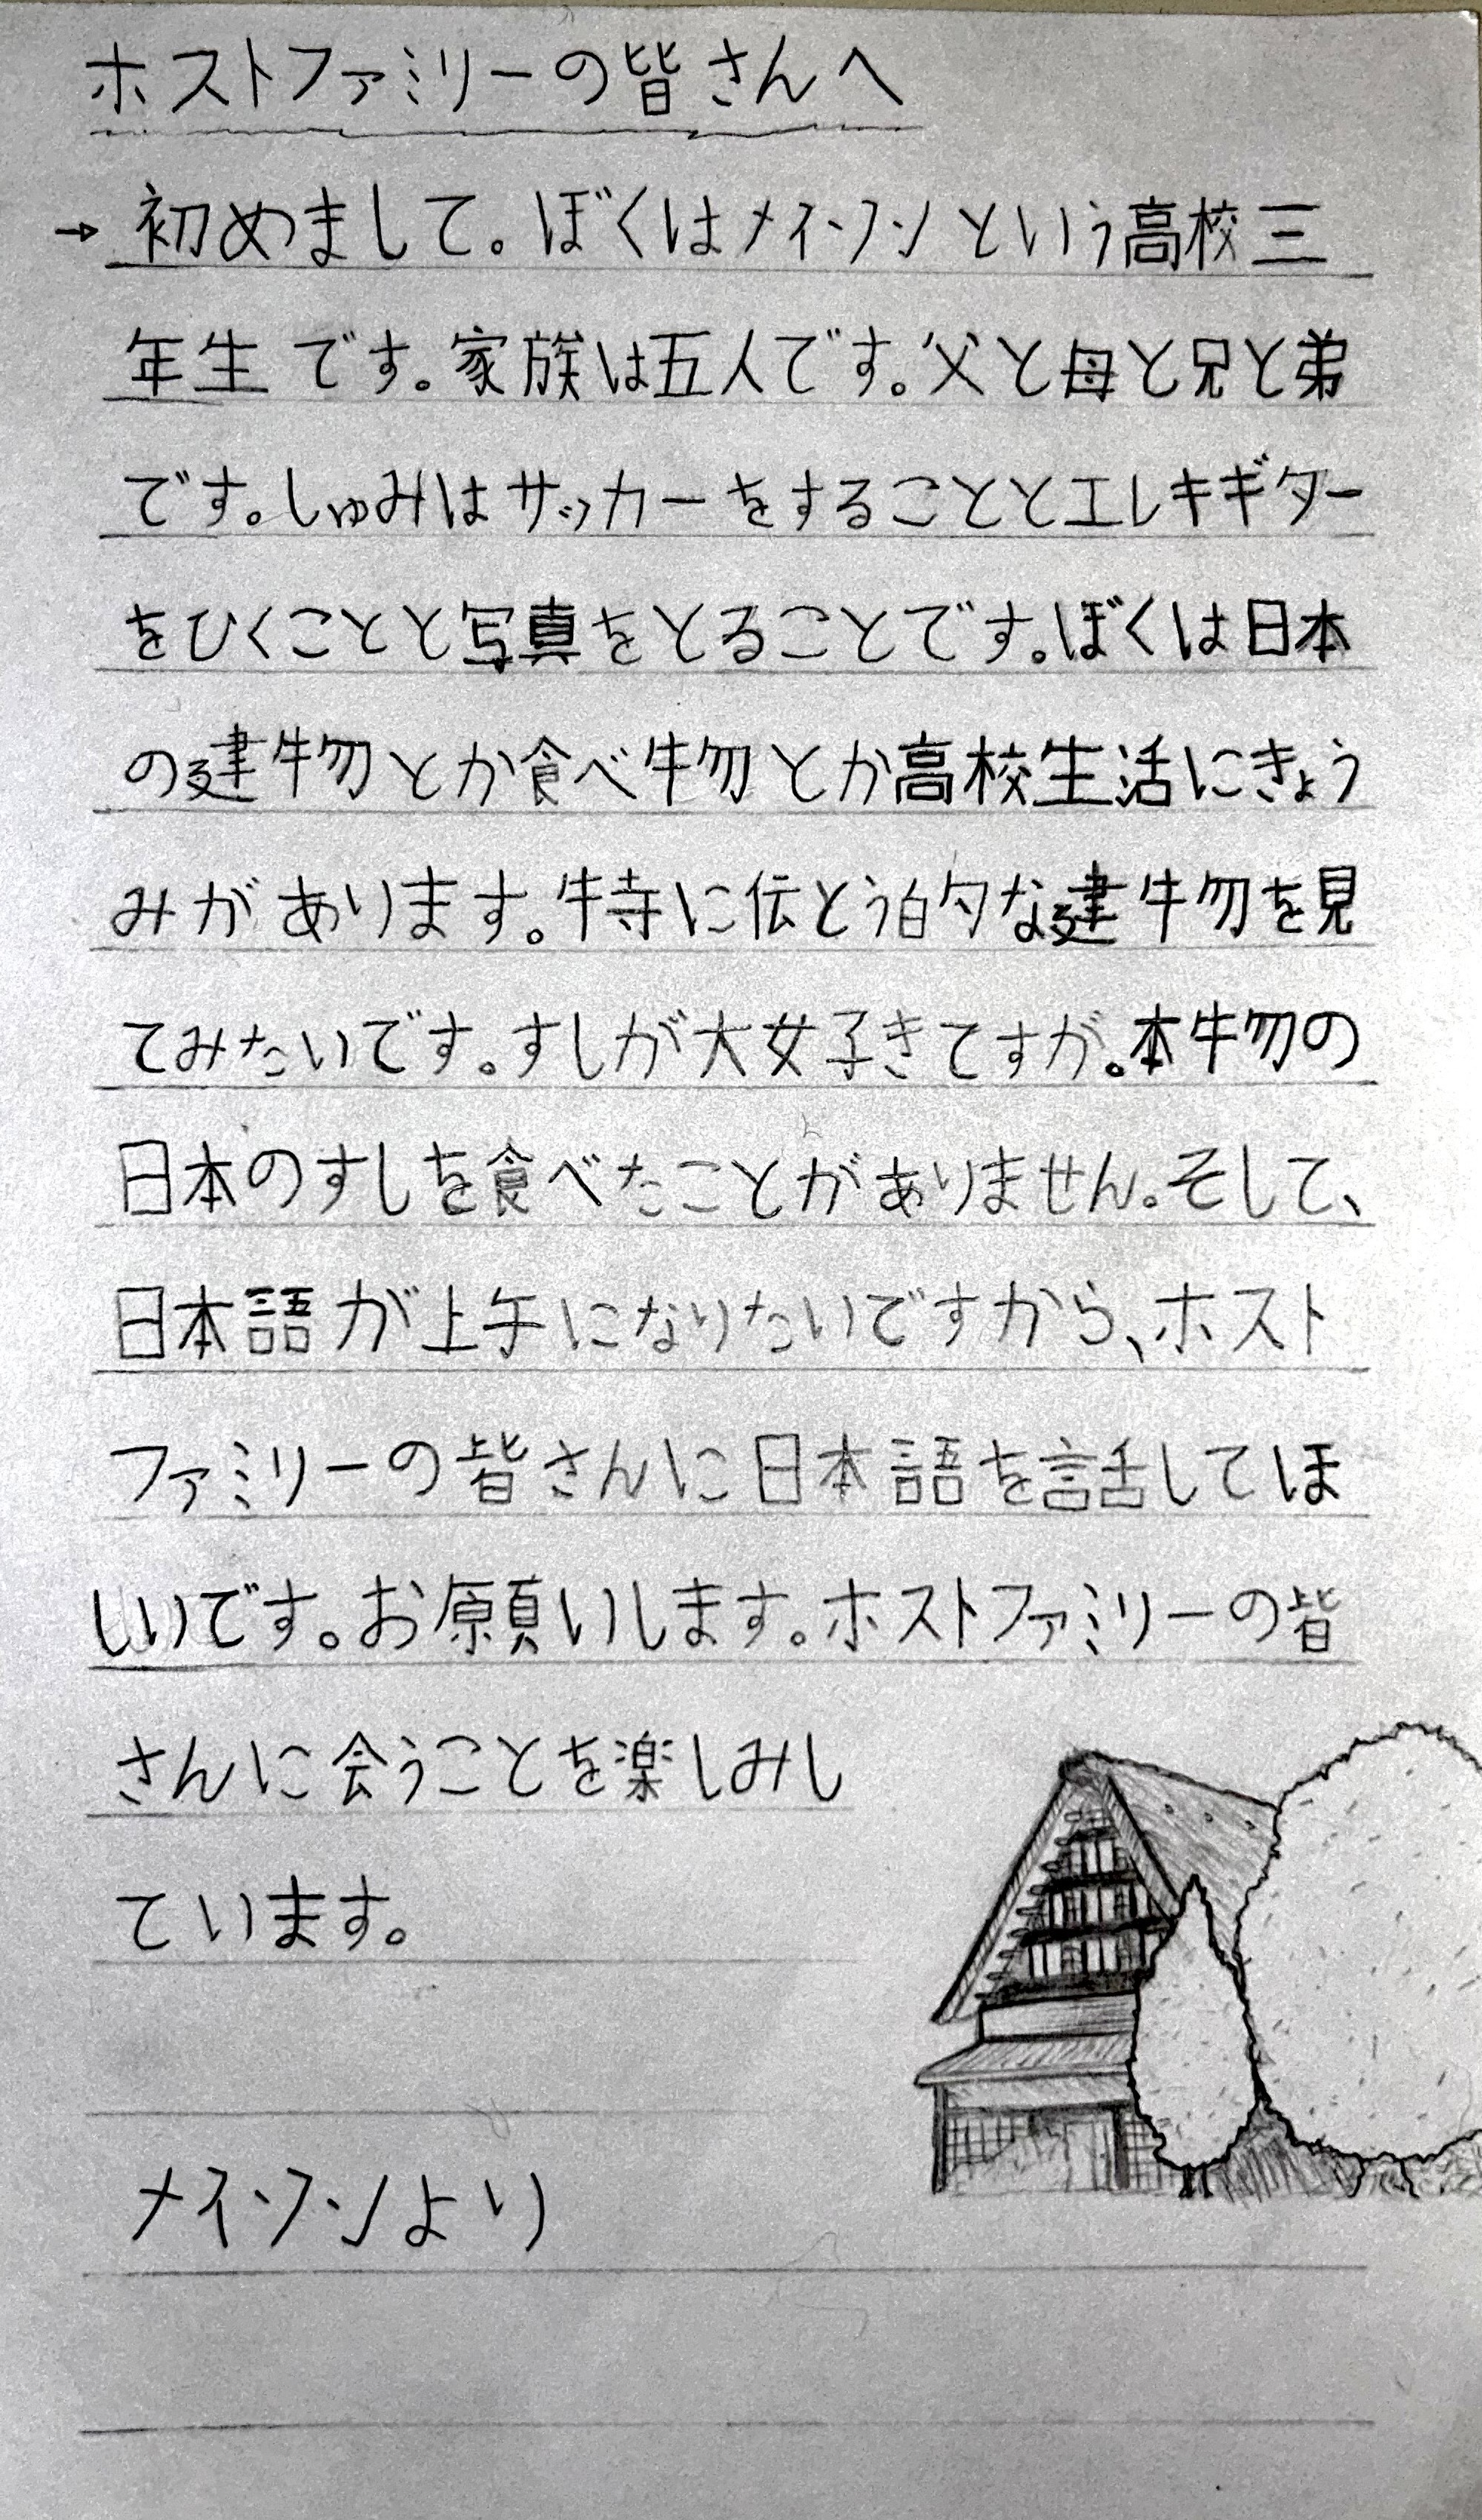 ホストファミリーの皆さんへ
→ 初めまして。ぼくはメイソンという高校三
年生です。家族は五人です。父と母と兄と弟
です。しゅみはサッカーをすることとエレキギター
をひくことと写真をとることです。ぼくは日本
の建物とか食べ物とか高校生活にきょう
みがあります。特に伝とう的な建物を見
てみたいです。すしが大好きてすが。本物の
日本のすしを食べたことがありません。そして、
日本語が上手になりたいですから、ホスト
ファミリーの皆さんに日本語を話してほ
しいです。お願いします。ホストファミリーの皆
さんに会うことを楽しみし
ています。
メイソンより